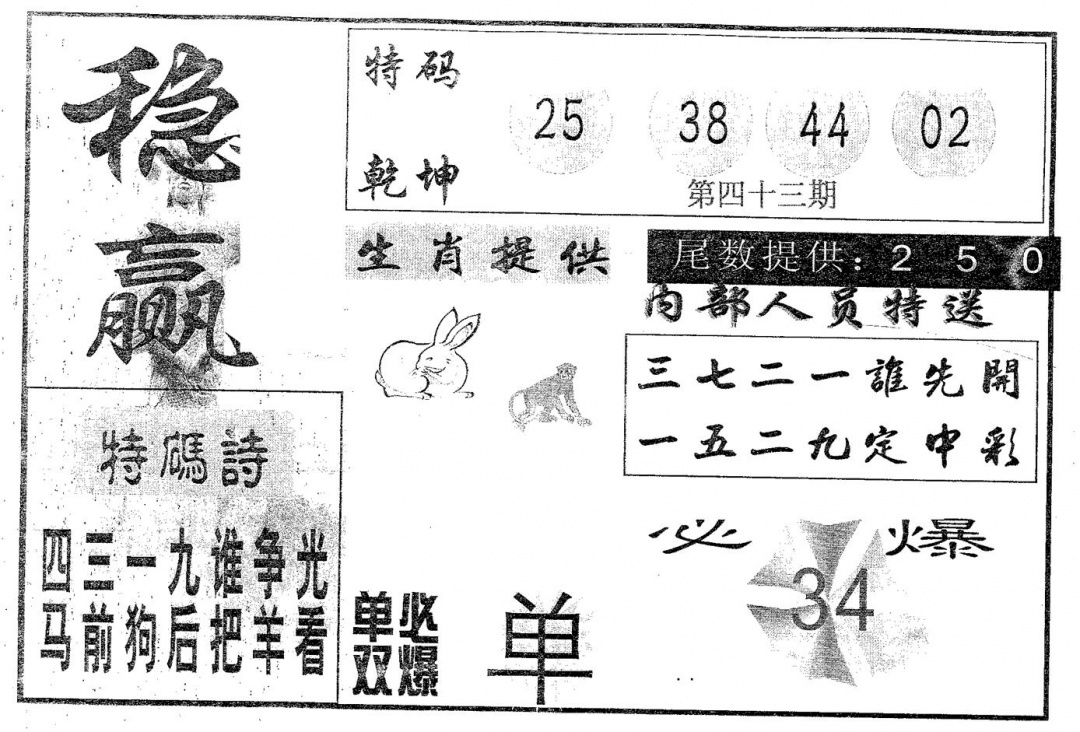 稳
赢
特码
乾坤
25 38 44 02
第四十三期
生肖提供
尾数提供：2 5 0
内部人员特送
三七二一誰先開
一五二九定中彩
特碼詩
四三一九谁争光
马前狗后把羊看
单双
必爆
单
必爆
34